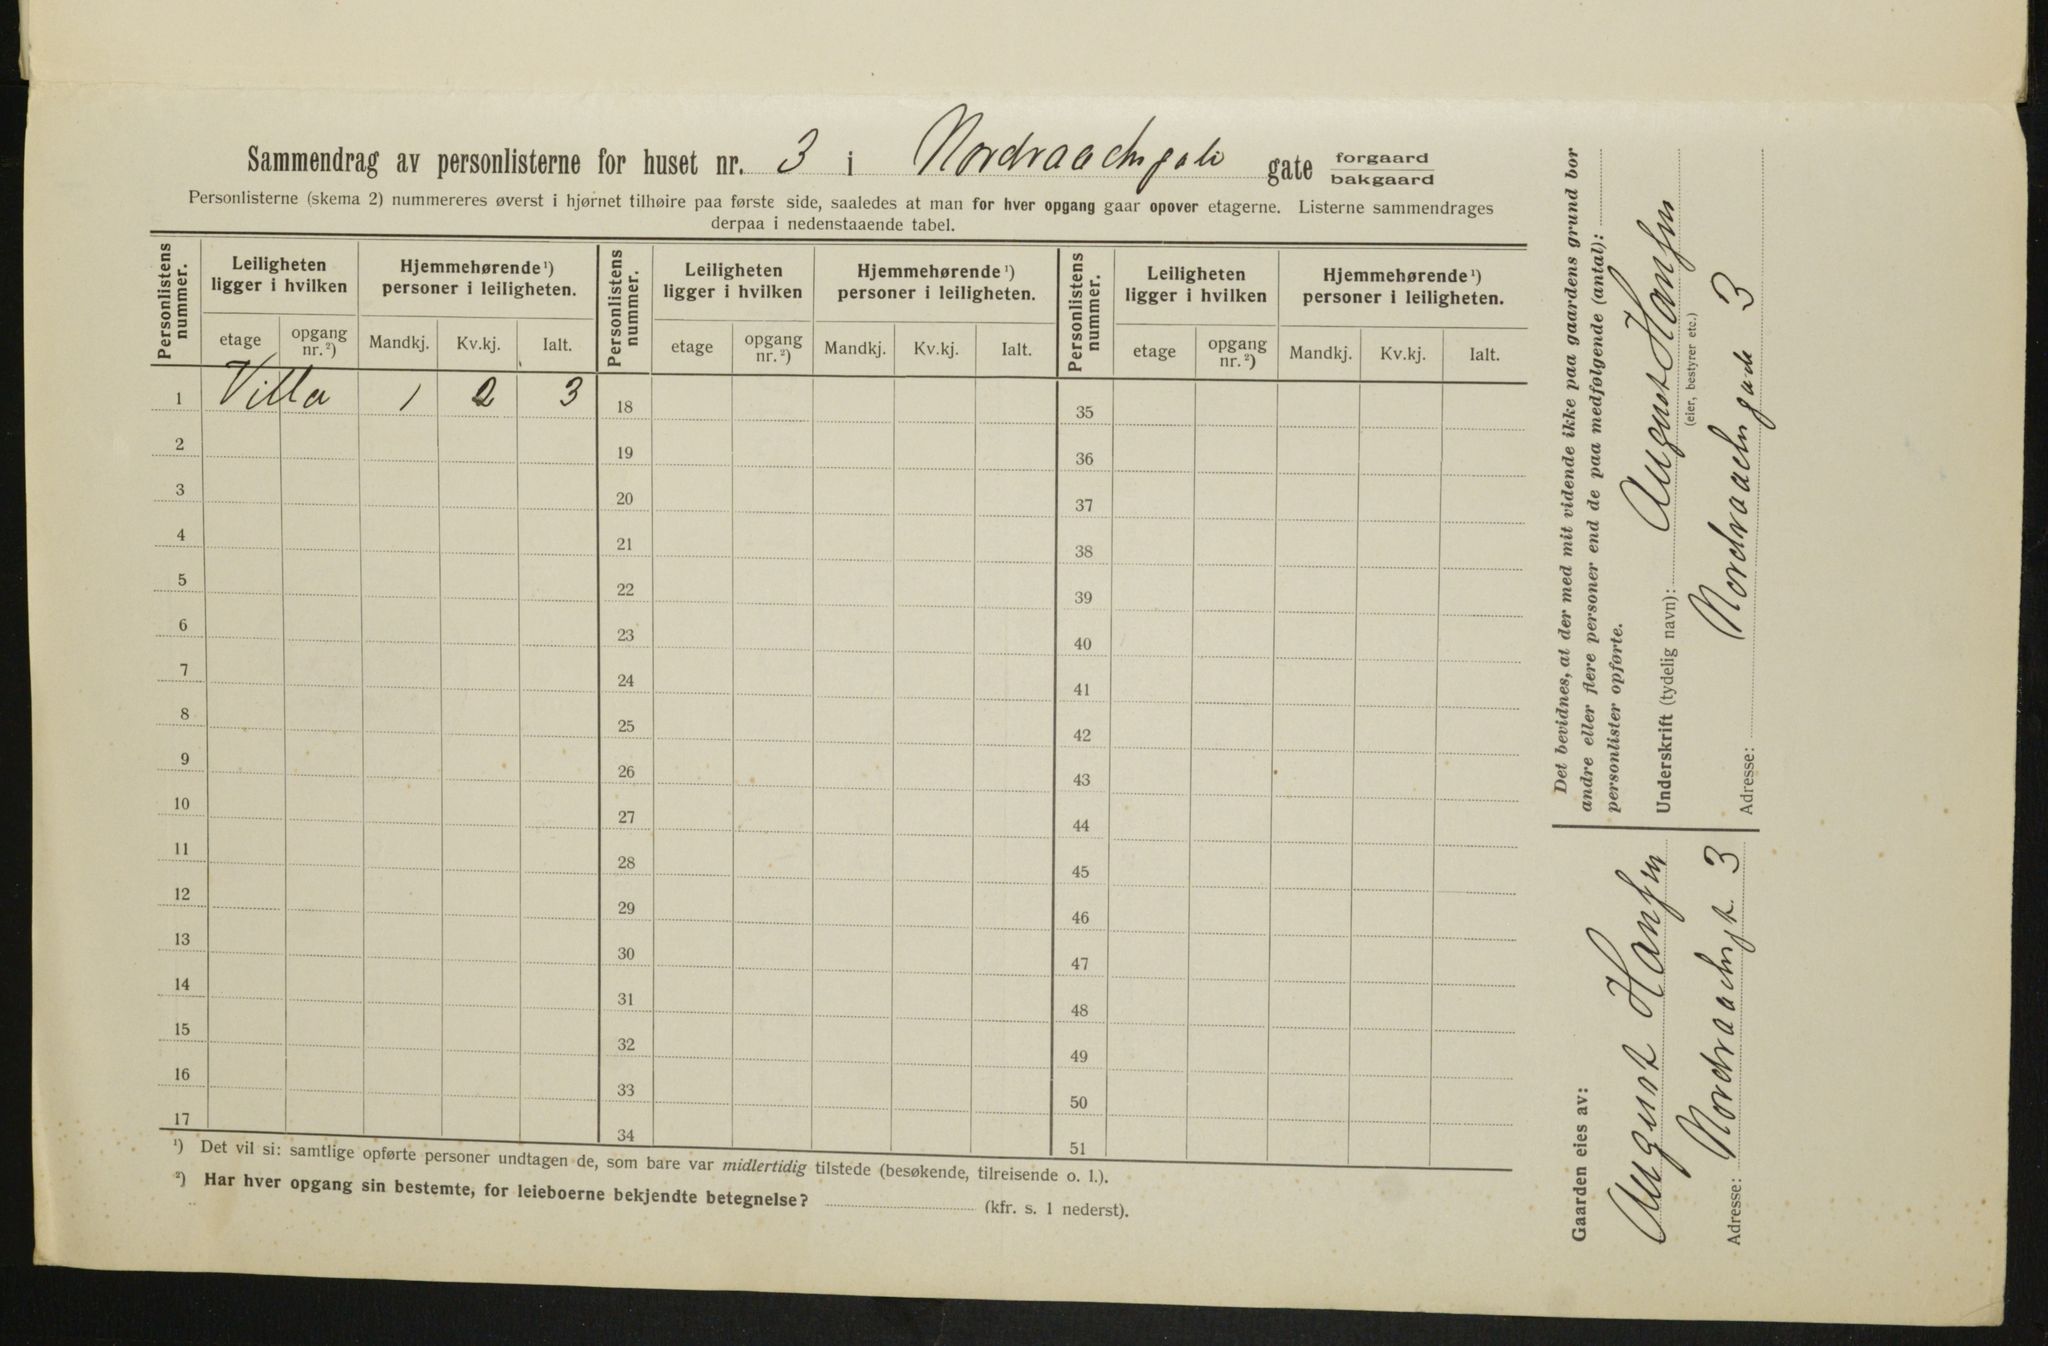 Sammendrag av personlisterne for huset nr. 3 i Nordraachsgate gate forgaard bakgaard
Personlisterne (skema 2) nummereres øverst i hjørnet tilhøire paa første side, saaledes at man for hver opgang gaar opover etagerne. Listerne sammendrages
derpaa i nedenstaaende tabel.
Personlistens nummer. Leiligheten ligger i hvilken Hjemmehørende¹) personer i leiligheten. Personlistens nummer. Leiligheten ligger i hvilken Hjemmehørende¹) personer i leiligheten. Personlistens nummer. Leiligheten ligger i hvilken Hjemmehørende¹) personer i leiligheten.
etage opgang nr.²) Mandkj. Kv.kj. Ialt. etage opgang nr.²) Mandkj. Kv.kj. Ialt. etage opgang nr.²) Mandkj. Kv.kj. Ialt.
1 Villa 1 2 3 18 35
2 19 36
3 20 37
4 21 38
5 22 39
6 23 40
7 24 41
8 25 42
9 26 43
10 27 44
11 28 45
12 29 46
13 30 47
14 31 48
15 32 49
16 33 50
17 34 51
¹) Det vil si: samtlige opførte personer undtagen de, som bare var midlertidig tilstede (besøkende, tilreisende o. l.).
²) Har hver opgang sin bestemte, for leieboerne bekjendte betegnelse? (kfr. s. 1 nederst).
Det bevidnes, at der med mit vidende ikke paa gaardens grund bor
andre eller flere personer end de paa medfølgende (antal):
personlister opførte.
Underskrift (tydelig navn): August Hansen
(eier, bestyrer etc.)
Adresse: Nordraachsgade 3
Gaarden eies av:
August Hansen
Adresse: Nordraachsgt. 3